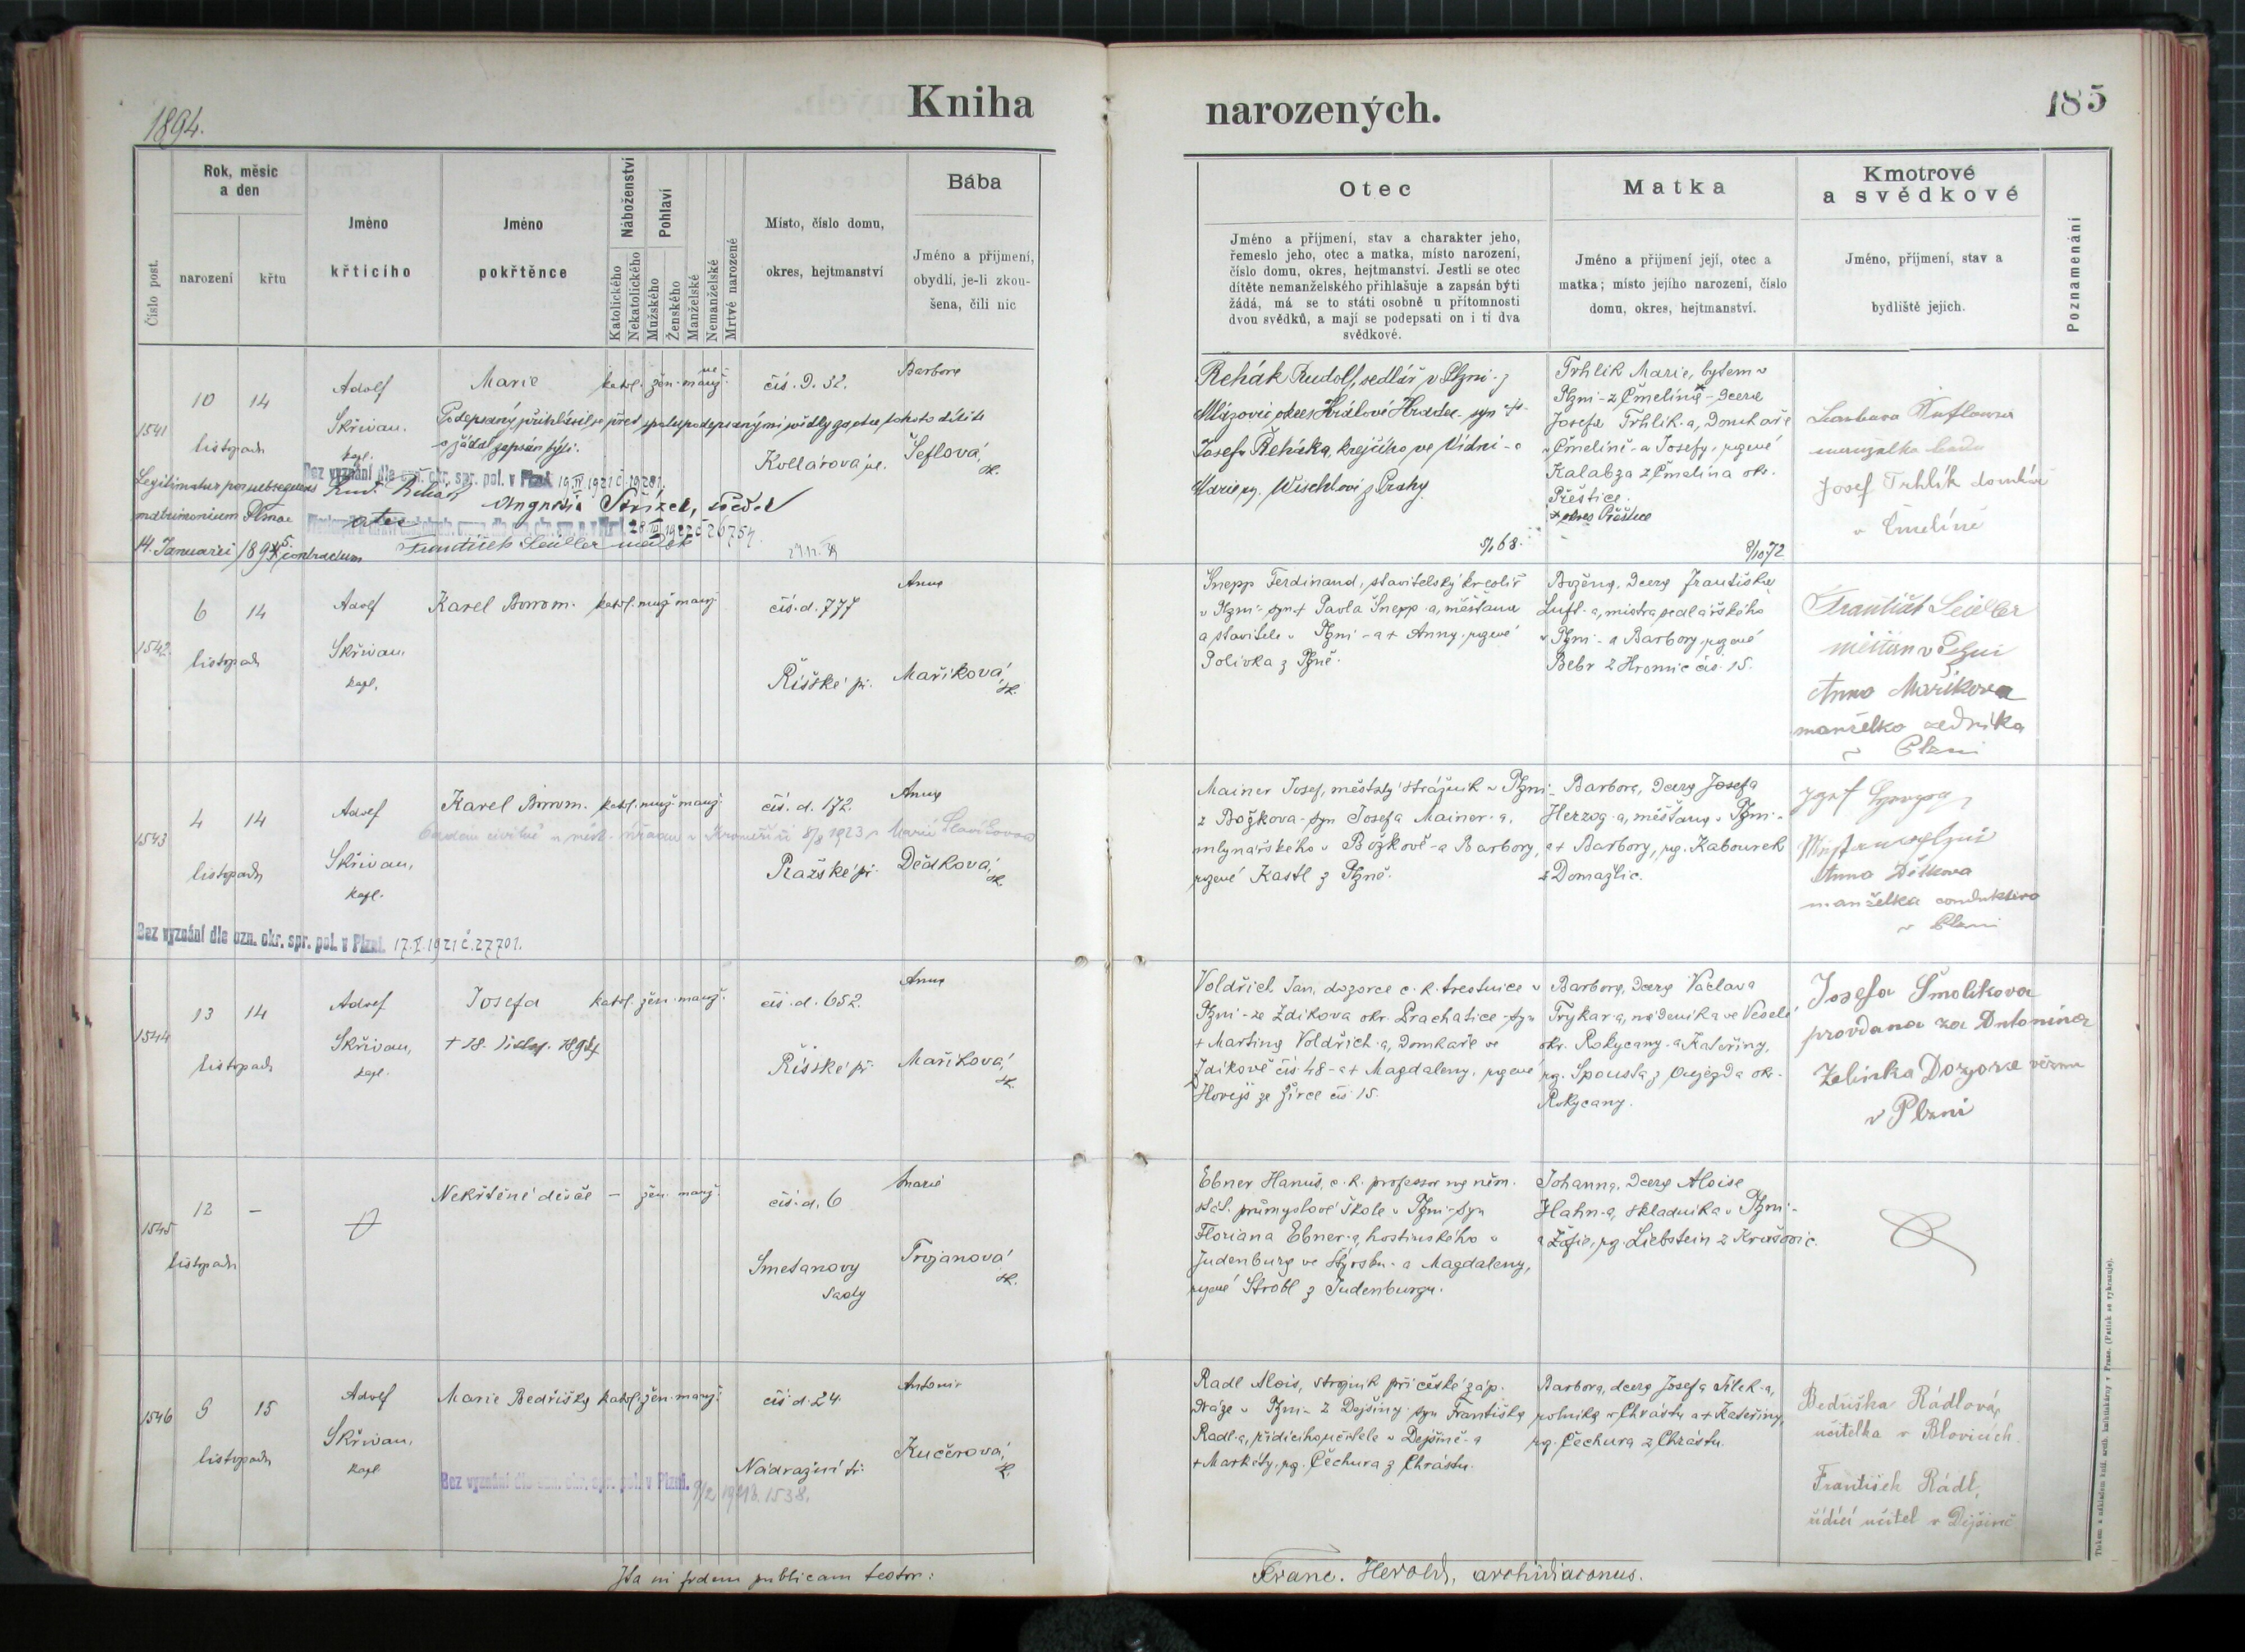 1894.
Kniha
narozených.
185
Číslo post.
Rok, měsíc
a den
narození
křtu
Jméno
křtícího
Jméno
pokřtěnce
Náboženství
Katolického
Nekatolického
Pohlaví
Mužského
Ženského
Manželské
Nemanželské
Mrtvé narozené
Místo, číslo domu,
okres, hejtmanství
Bába
Jméno a přijmení,
obydlí, je-li zkou-
šena, čili nic
Otec
Jméno a příjmení, stav a charakter jeho,
řemeslo jeho, otec a matka, místo narození,
číslo domu, okres, hejtmanství. Jestli se otec
dítěte nemanželského přihlašuje a zapsán býti
žádá, má se to státi osobně u přítomnosti
dvou svědků, a mají se podepsati on i tí dva
svědkové.
Matka
Jméno a přijmení její, otec a
matka; místo jejího narození, číslo
domu, okres, hejtmanství.
Kmotrové
a svědkové
Jméno, příjmení, stav a
bydliště jejich.
Poznamenání
1541
10 14
listopadu
Adolf
Skřivan,
kapl.
Marie
katol. žen. nemanž.
Podepsaný přihlásil se před spolupodepsanými svědky za otce tohoto dítěte
a žádal zapsán býti.
čís. d. 32.
Kollárova ul.
Barbora
Šeflová,
zk.
Bez vyznání dle ozn. okr. spr. pol. v Plzni 19.IV.1921 č.19281.
Legitimatur per subsequens
matrimonium Plznae
14. Januarii 1895 contractum
otec
Střízek, svědek
František Seidler svědek
Řehák Rudolf, sedlář v Plzni - z
okres Králové Hradec - syn
Josefa Řeháka, krejčího ve Vídni - a
Marie, roz. z Prahy.
5/1 68.
Trhlík Marie, bytem v
Plzni - z Čmelína - dcera
Josefa Trhlík-a, domkáře
v Čmelíně - a Josefy, rozené
Kalabza z Čmelína okr.
Přeštice.
+ okres Přeštice
8/10 72
Josef Trhlík domkář
v Čmelíně
1542
6 14
listopadu
Adolf
Skřivan,
kapl.
Karel Borrom.
katol. muž. manž.
čís. d. 777
Říšské př.
Anna
Maříková,
zk.
Šnepp Ferdinand, stavitelský kreslič
v Plzni - syn + Pavla Šnepp-a, měšťana
a stavitele v Plzni - a + Anny, rozené
Polívka z Plzně.
Božena, dcera Františka
Luft-a, mistra sedlářského
v Plzni - a Barbory, rozené
Bebr z Hromic čís. 15.
František Seidler
měšťan v Plzni
Anna Maříkova
manželka zedníka
v Plzni
1543
4 14
listopadu
Adolf
Skřivan,
kapl.
Karel Borrom.
katol. muž. manž.
Oddán civilně u městs. úřadu v Kroměříži 8/9 1923 s Marií Slavíkovou
čís. d. 172.
Pražské př.
Anna
Dědková,
zk.
Bez vyznání dle ozn. okr. spr. pol. v Plzni. 17.V.1921 č.27701.
Mainer Josef, městský strážník v Plzni -
z Božkova - syn Josefa Mainer-a,
mlynářského v Božkově - a Barbory,
rozené Kastl z Plzně.
Barbora, dcera Josefa
Herzog-a, měšťana v Plzni -
a + Barbory, roz. Kabourek
z Domažlic.
Anna Dětkova
manželka conduktéra
v Plzni
1544
13 14
listopadu
Adolf
Skřivan,
kapl.
Josefa
+ 18. listop. 1894
katol. žen. manž.
čís. d. 652.
Říšské př.
Anna
Maříková,
zk.
Voldřich Jan, dozorce c. k. trestnice v
Plzni - ze Zdíkova okr. Prachatice - syn
+ Martina Voldřich-a, domkáře ve
Zdíkově čís. 48 - a + Magdaleny, rozené
ze Žírce čís. 15.
Barbora, dcera Václava
Trykar-a, nádeníka ve Veselé
okr. Rokycany - a Kateřiny,
roz. Spousta z Oujezda okr.
Rokycany.
Josefa Smolikova
provdana za Antonína
Zelinka Dozorce věznu
v Plzni
1545
12 -
listopadu
Nekřtěné děvče
- žen. manž.
čís. d. 6
Smetanovy
sady
Marie
Trojanová
zk.
Ebner Hanuš, c. k. professor na něm.
stát. průmyslové škole v Plzni - syn
Floriana Ebner-a, hostinského v
Judenburg ve Štýrsku - a Magdaleny,
rozené Strobl z Judenburgu.
Johanna, dcera Aloise
Hahn-a, skladníka v Plzni -
a Žofie, roz. Liebstein z Krašovic.
1546
9 15
listopadu
Adolf
Skřivan,
kapl.
Marie Bedřiška
katol. žen. manž.
čís. d. 24.
Nádražní tř.
Antonie
Kučerová,
zk.
Bez vyznání dle ozn. okr. spr. pol. v Plzni. 9/2 1921 č. 1538.
Radl Alois, strojník při české záp.
dráze v Plzni - z Dejšiny - syn Františka
Radl-a, řídícího učitele v Dejšině - a
+ Markéty, roz. Čechura z Chrástu.
Barbora, dcera Josefa Šílek-a,
rolníka v Chrástu a + Kateřiny,
roz. Čechura z Chrástu.
Bedřiška Rádlová,
učitelka v Blovicích.
František Rádl,
řídící učitel v Dejšině
Ita in fidem publicam testor:
Franc. Herold, archidiaconus.